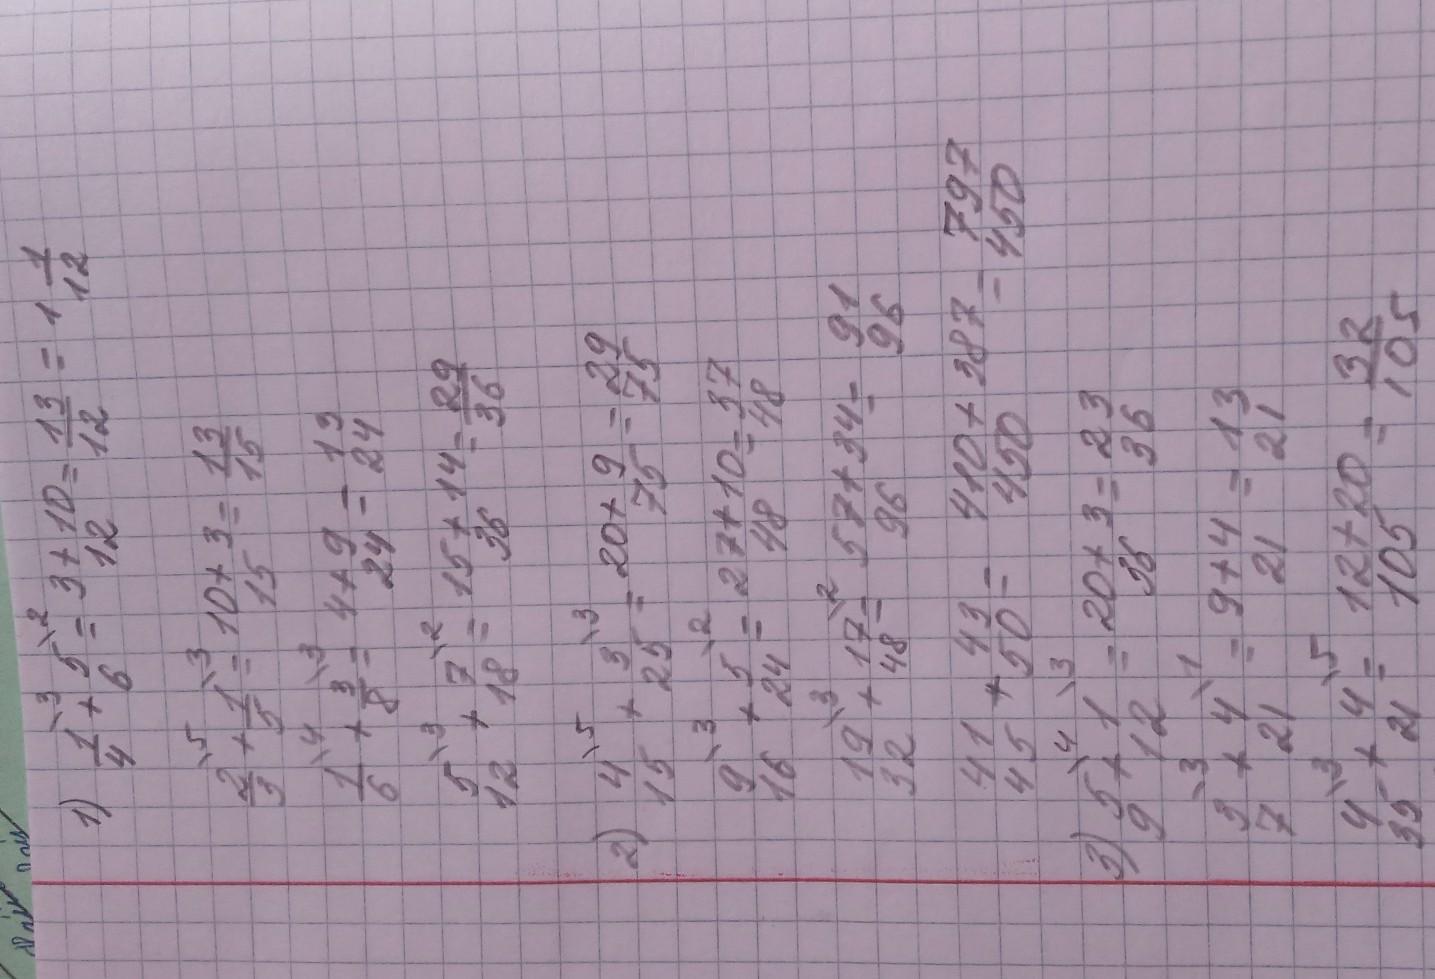 1) 1/4\3 + 5/6\2 = 3+10/12 = 13/12 = 1 1/12
2/3\5 + 1/5\3 = 10+3/15 = 13/15
1/6\4 + 3/8\3 = 4+9/24 = 13/24
5/12\3 + 7/18\2 = 15+14/36 = 29/36
2) 4/15\5 + 3/25\3 = 20+9/75 = 29/75
9/16\3 + 5/24\2 = 27+10/48 = 37/48
19/32\3 + 17/48\2 = 57+34/96 = 91/96
41/45 + 43/50 = 410+387/450 = 797/450
3) 5/9\4 + 1/12\3 = 20+3/36 = 23/36
3/7\3 + 4/21\1 = 9+4/21 = 13/21
4/35\3 + 4/21\5 = 12+20/105 = 32/105